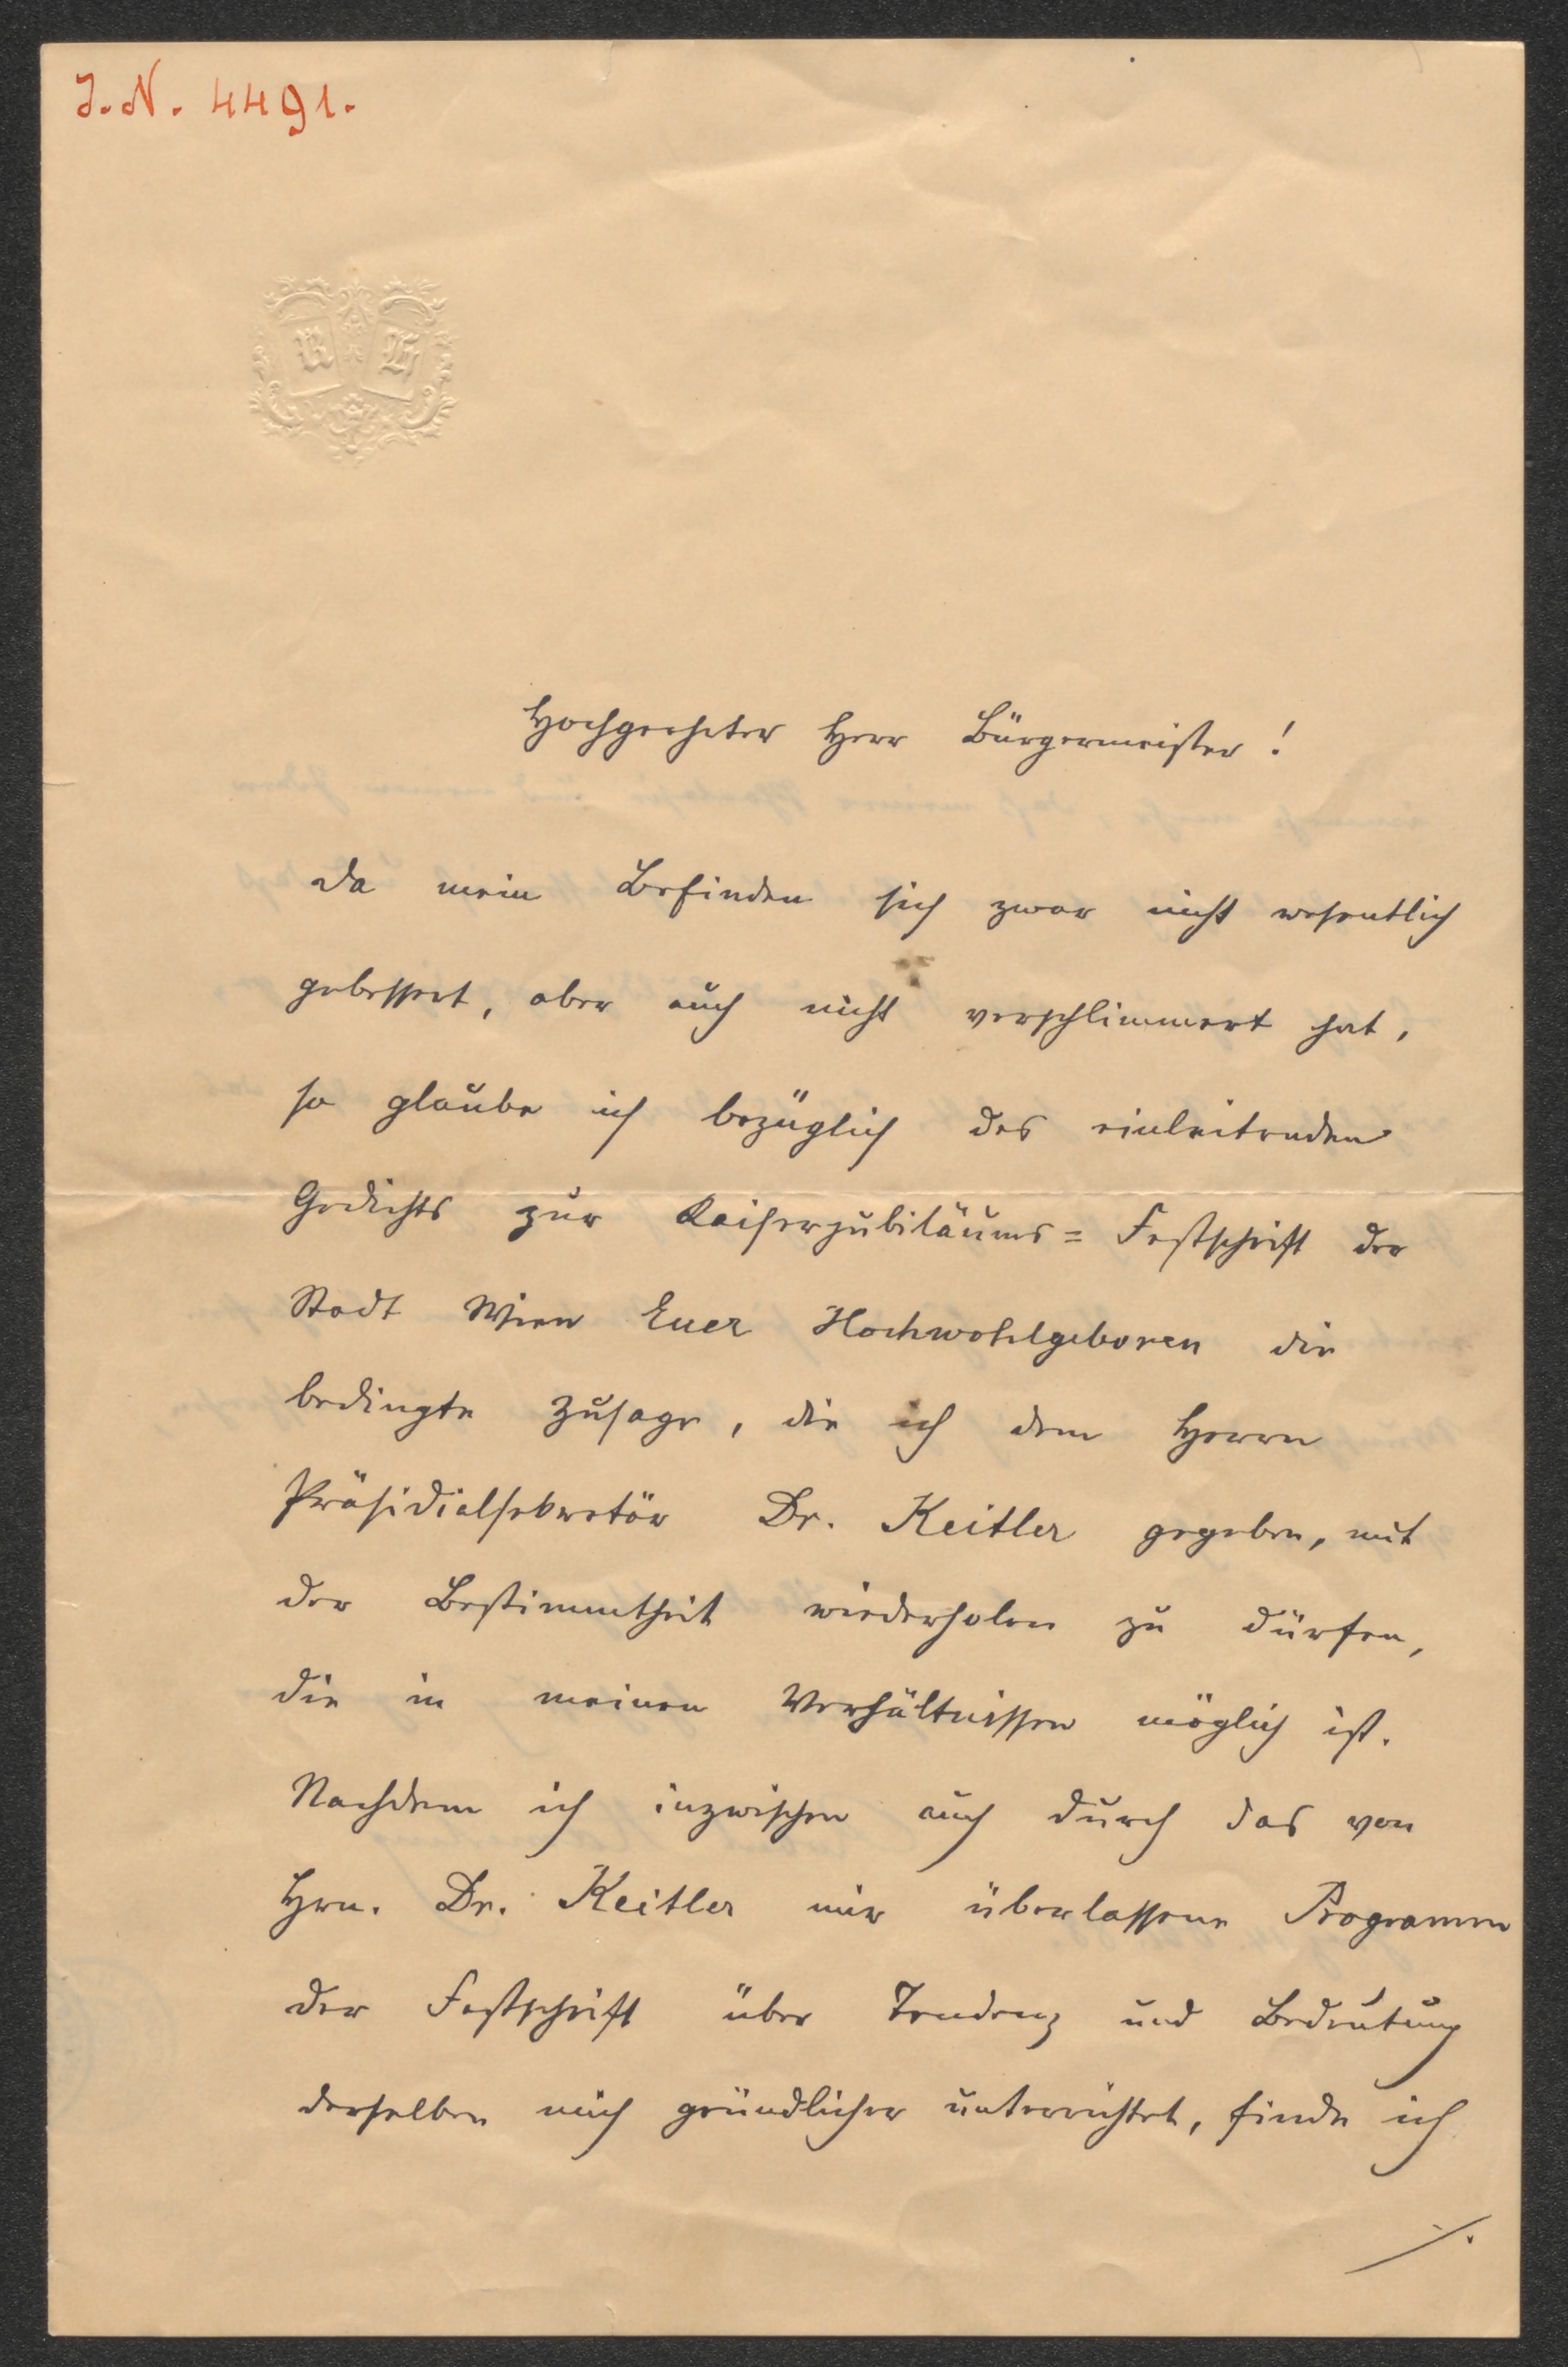 J.N. 4491.
R H
Hochgeehrter Herr Bürgermeister!
Da mein Befinden sich zwar nicht wesentlich
gebessert, aber auch nicht verschlimmert hat,
so glaube ich bezüglich des einleitenden
Gedichts zur Kaiserjubiläums= Festschrift der
Stadt Wien Euer Hochwohlgeboren die
bedingte Zusage, die ich dem Herrn
Präsidialsekretär Dr. Keitler gegeben, mit
der Bestimmtheit wiederholen zu dürfen,
die in meinen Verhältnissen möglich ist.
Nachdem ich inzwischen auch durch das von
Hrn. Dr. Keitler mir überlassene Programm
der Festschrift über Tendenz und Bedeutung
derselben mich gründlicher unterrichtet, finde ich
./.